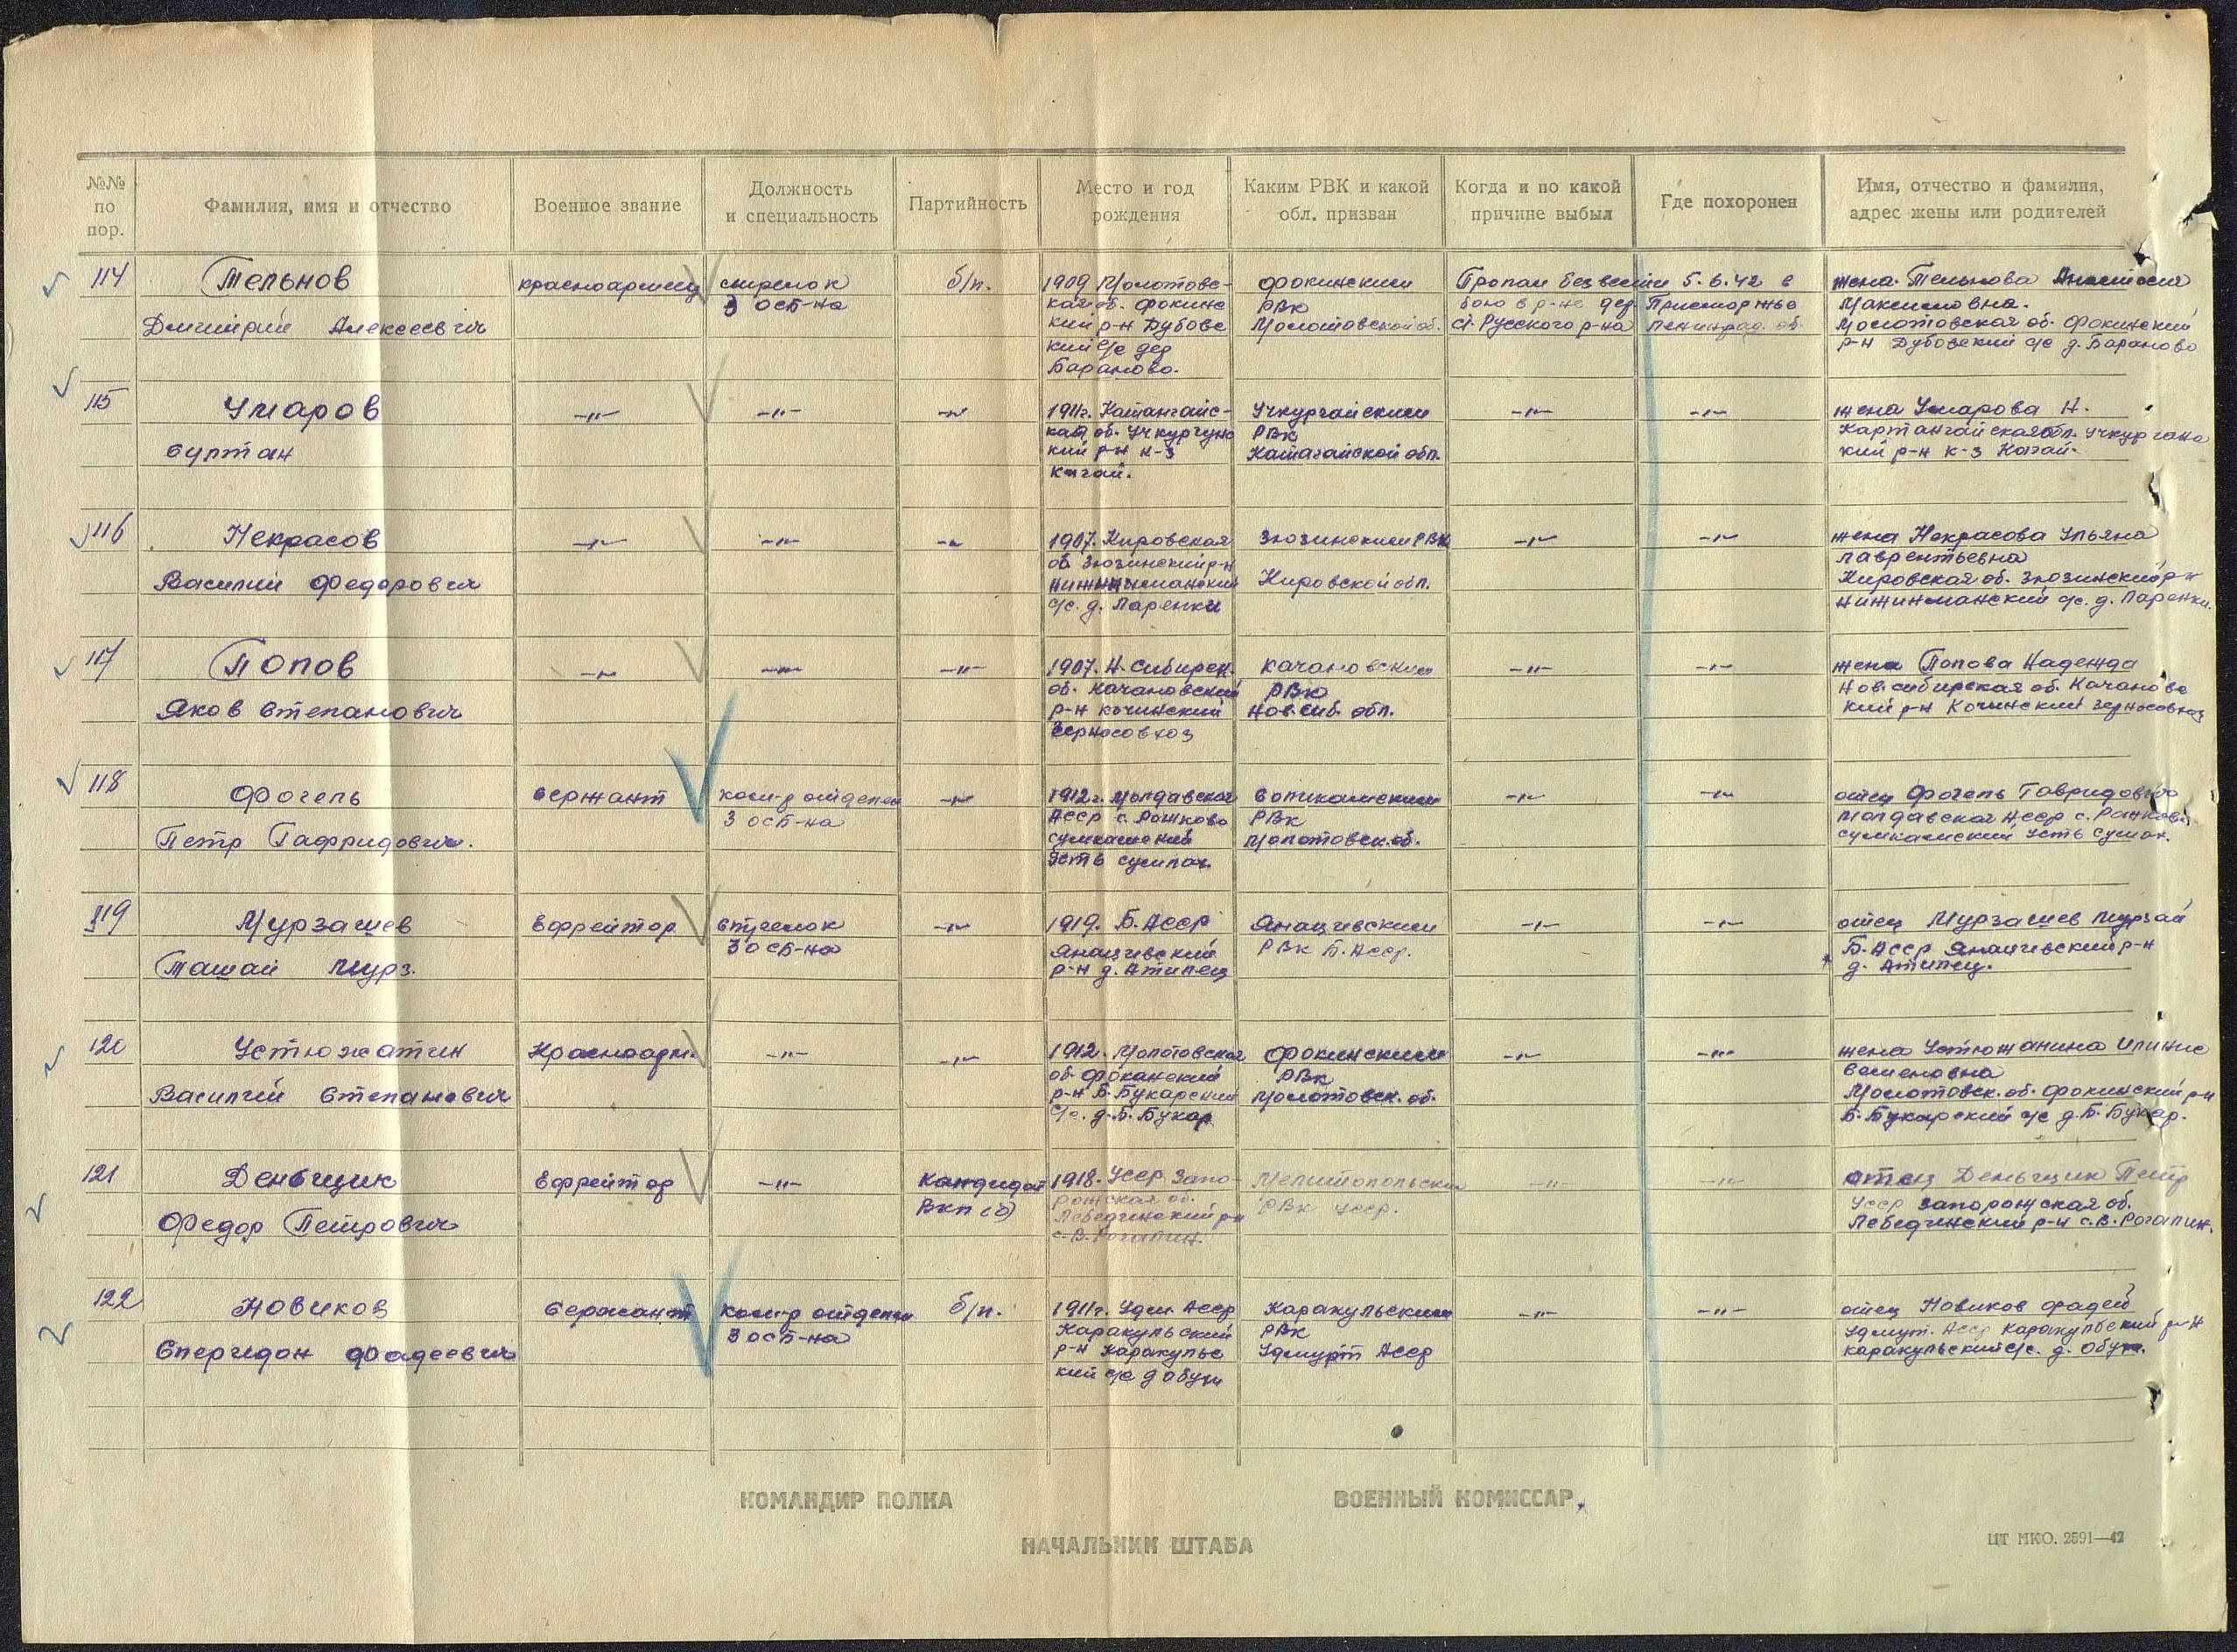 №№ по пор.
Фамилия, имя и отчество
Военное звание
Должность и специальность
Партийность
Место и год рождения
Каким РВК и какой обл. призван
Когда и по какой причине выбыл
Где похоронен
Имя, отчество и фамилия, адрес жены или родителей
114
Тельнов
Дмитрий Алексеевич
красноармеец
стрелок
3 ОСБ-на
б/п.
1909 Молотовс-
кая об. Фокинс
кий р-н Дубовс
кий с/с дер
Бараново.
Фокинским
РВК
Молотовской об.
Пропал без вести 5.6.42 в
бою в р-не дер. Присморжье
Ст. Русского р-на Ленинград. об.
жена Тельнова
Максимовна.
Молотовская об. Фокинский
р-н Дубовский с/с д. Бараново
115
Умаров
Султан
-"-
-"-
-"-
1911г.
каю об.
кий р-н к-з
Учкургайским
РВК
-"-
-"-
жена Умарова Н.
кий р-н к-з
116
Некрасов
Василий Федорович
-"-
-"-
-"-
1907. Кировская
об. Зюзинский р-н
с/с. д. Ларенки
Зюзинским РВК
Кировской обл.
-"-
-"-
жена Некрасова Ульяна
Лаврентьевна
Кировская об. Зюзинский р-н
с/с. д. Ларенки.
117
Попов
Яков Степанович
-"-
-"-
-"-
1907. Н. Сибирск.
об. Качановский
р-н Кочинский
Зерносовхоз
Качановским
РВК
Нов. сиб. обл.
-"-
-"-
жена Попова Надежда
Новсибирская об. Качановс
кий р-н Кочинский зерносовхоз
118
Фогель
Петр Гафридович.
Сержант
ком-р отделен
3 ОСБ-на
-"-
1912г. Молдавская
АССР с.
РВК
Молотовск. об.
-"-
-"-
отец Фогель Гавридович
Молдавская АССР с.
119
Мурзашев
Ташай Мурз.
Ефрейтор
Стрелок
3 ОСБ-на
-"-
1919. Б. АССР
р-н д. Атипец
РВК Б. АССР.
-"-
-"-
отец Мурзашев Мурзай
Б. АССР р-н
д. Атипец.
120
Устюжатин
Василий Степанович
Красноарм.
-"-
-"-
1912. Молотовская
об. Фоканский
р-н Б. Букарский
с/с. д. Б. Букар
Фокинским
РВК
Молотовск. об.
-"-
-"-
жена Устюжанина
Семеновна
Молотовск. об. Фокинский р-н
Б. Букарский с/с д. Б. Букар.
121
Деньщик
Федор Петрович
Ефрейтор
-"-
Кандидат
ВКП(б)
1918. УССР Запо-
рожская об.
р-н
с. В. Рогатин.
Мелитопольским
РВК УССР.
-"-
-"-
отец Деньщик Петр
УССР Запорожская об.
р-н с. В. Рогатин.
122
Новиков
Сперидон Фадеевич
Сержант
ком-р отделен
3 ОСБ-на
б/п.
1911г. Удм АССР
Каракульский
р-н Каракульс
кий с/с д
Каракульским
РВК
Удмурт АССР
-"-
-"-
отец Новиков Фадей
Удмурт. АССР Каракульский р-н
Каракульский с/с. д.
КОМАНДИР ПОЛКА
ВОЕННЫЙ КОМИССАР
НАЧАЛЬНИК ШТАБА
ЦТ НКО. 2591—42